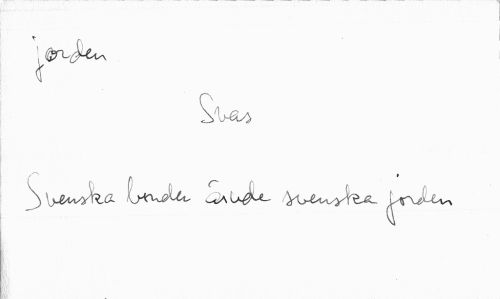 jorden
Svas
Svenska bonder ärvde svenska jorden